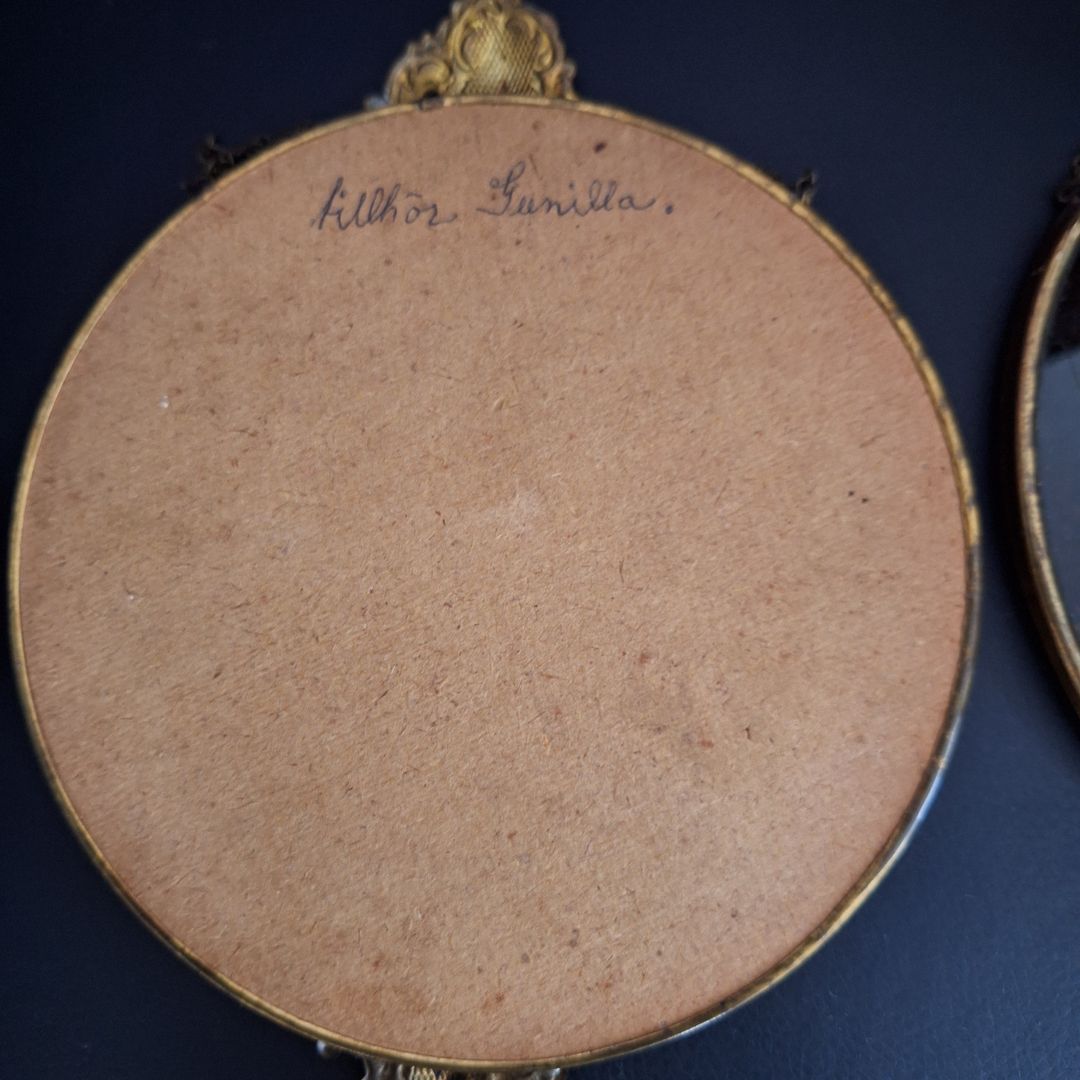 tillhör Gunilla.